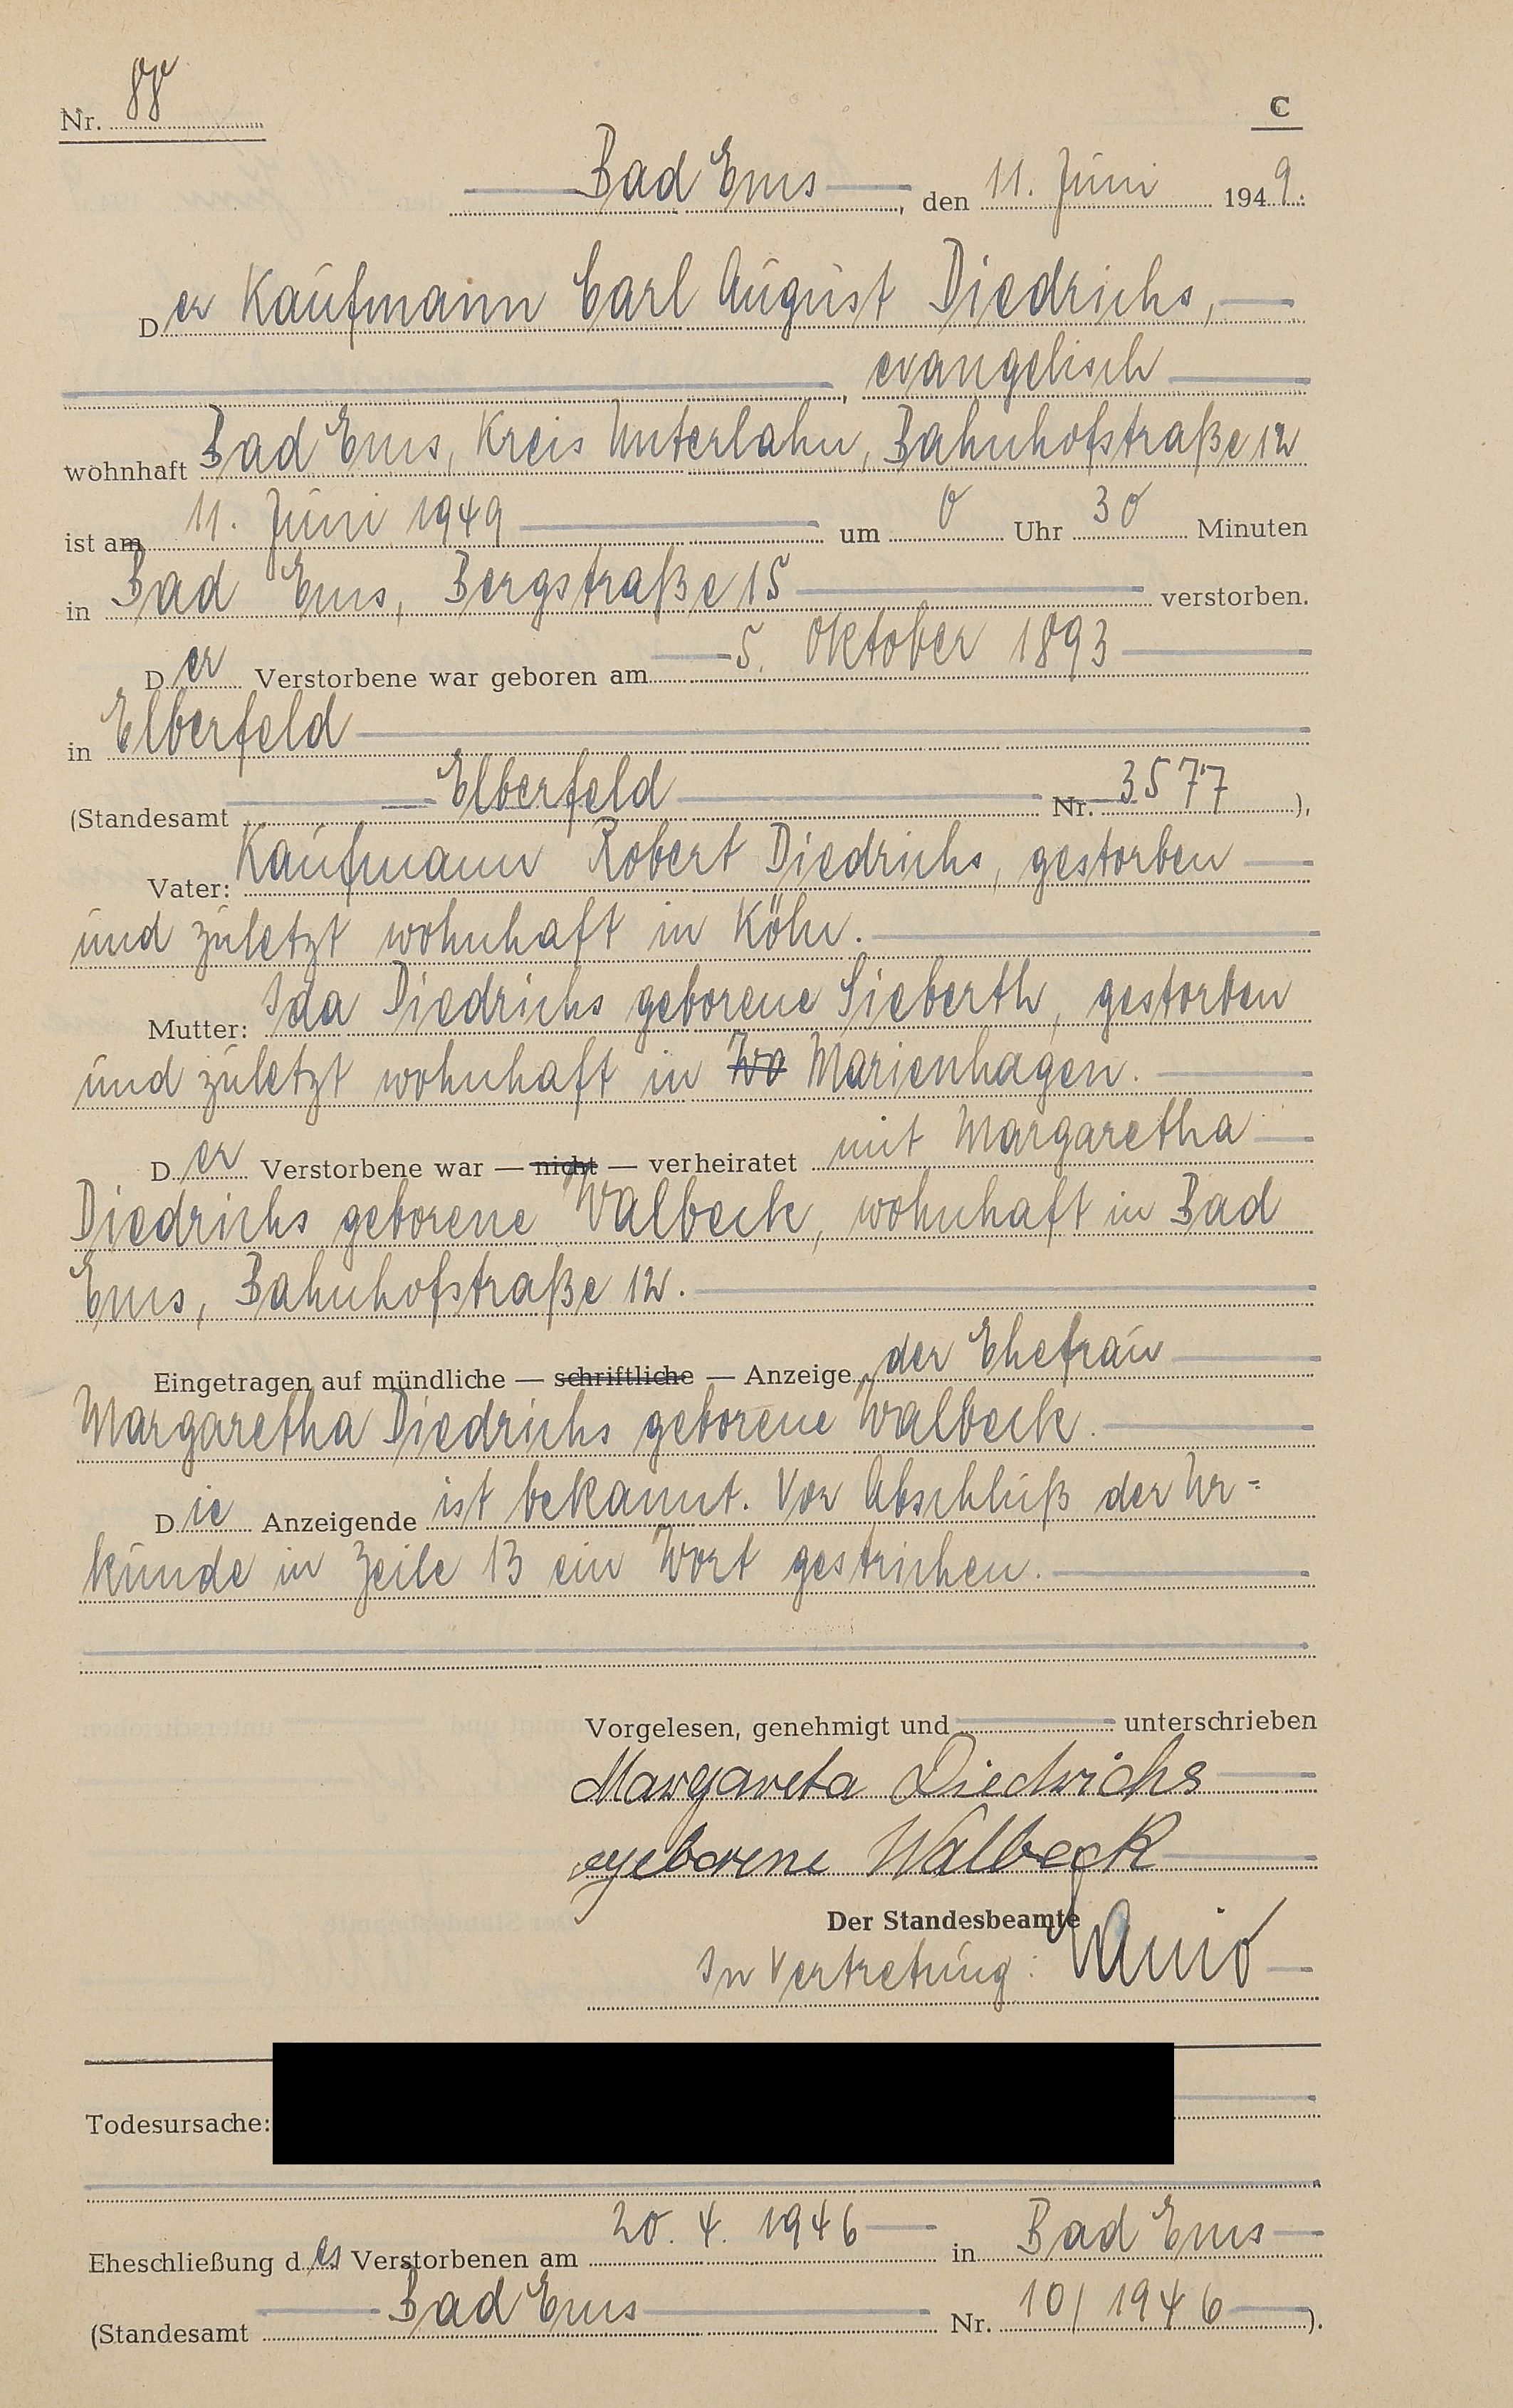 Nr. 88
C
Bad Ems, den 11. Juni 1949.
Der Kaufmann Carl August Diedrichs,
, evangelisch
wohnhaft Bad Ems, Kreis Unterlahn, Bahnhofstraße 12
ist am 11. Juni 1949 um 0 Uhr 30 Minuten
in Bad Ems, Bergstraße 15 verstorben.
Der Verstorbene war geboren am 5. Oktober 1893
in Elberfeld
(Standesamt Elberfeld Nr. 3577),
Vater: Kaufmann Robert Diedrichs, gestorben
und zuletzt wohnhaft in Köln.
Mutter: Ida Diedrichs geborene Sieberth, gestorben
und zuletzt wohnhaft in Wo Marienhagen.
Der Verstorbene war — nicht — verheiratet mit Margaretha
Diedrichs geborene Walbeck, wohnhaft in Bad
Ems, Bahnhofstraße 12.
Eingetragen auf mündliche — schriftliche — Anzeige der Ehefrau
Margaretha Diedrichs geborene Walbeck.
Die Anzeigende ist bekannt. Vor Abschluß der Ur=
kunde in Zeile 13 ein Wort gestrichen.
Vorgelesen, genehmigt und unterschrieben
Margareta Diedrichs
geborene Walbeck
Der Standesbeamte
In Vertretung:
Todesursache:
Eheschließung des Verstorbenen am 20. 4. 1946 in Bad Ems
(Standesamt Bad Ems Nr. 10/1946).